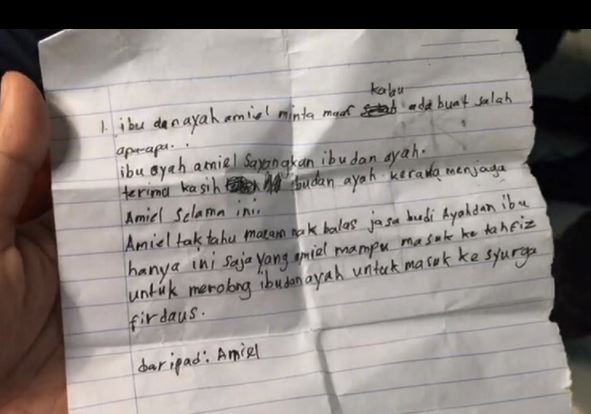 kalau
1. ibu dan ayah amiel minta maaf ada buat salah
apa-apa..
ibu ayah amiel Sayangkan ibu dan ayah.
terima kasih ibudan ayah kerana menjaga
Amiel Selama ini.
Amiel tak tahu macam nak balas jasa budi Ayahdan ibu
hanya ini saja yang amiel mampu masuk ke tahfiz
untuk menolong ibudan ayah untuk masuk ke syurga
firdaus.
daripad: Amiel